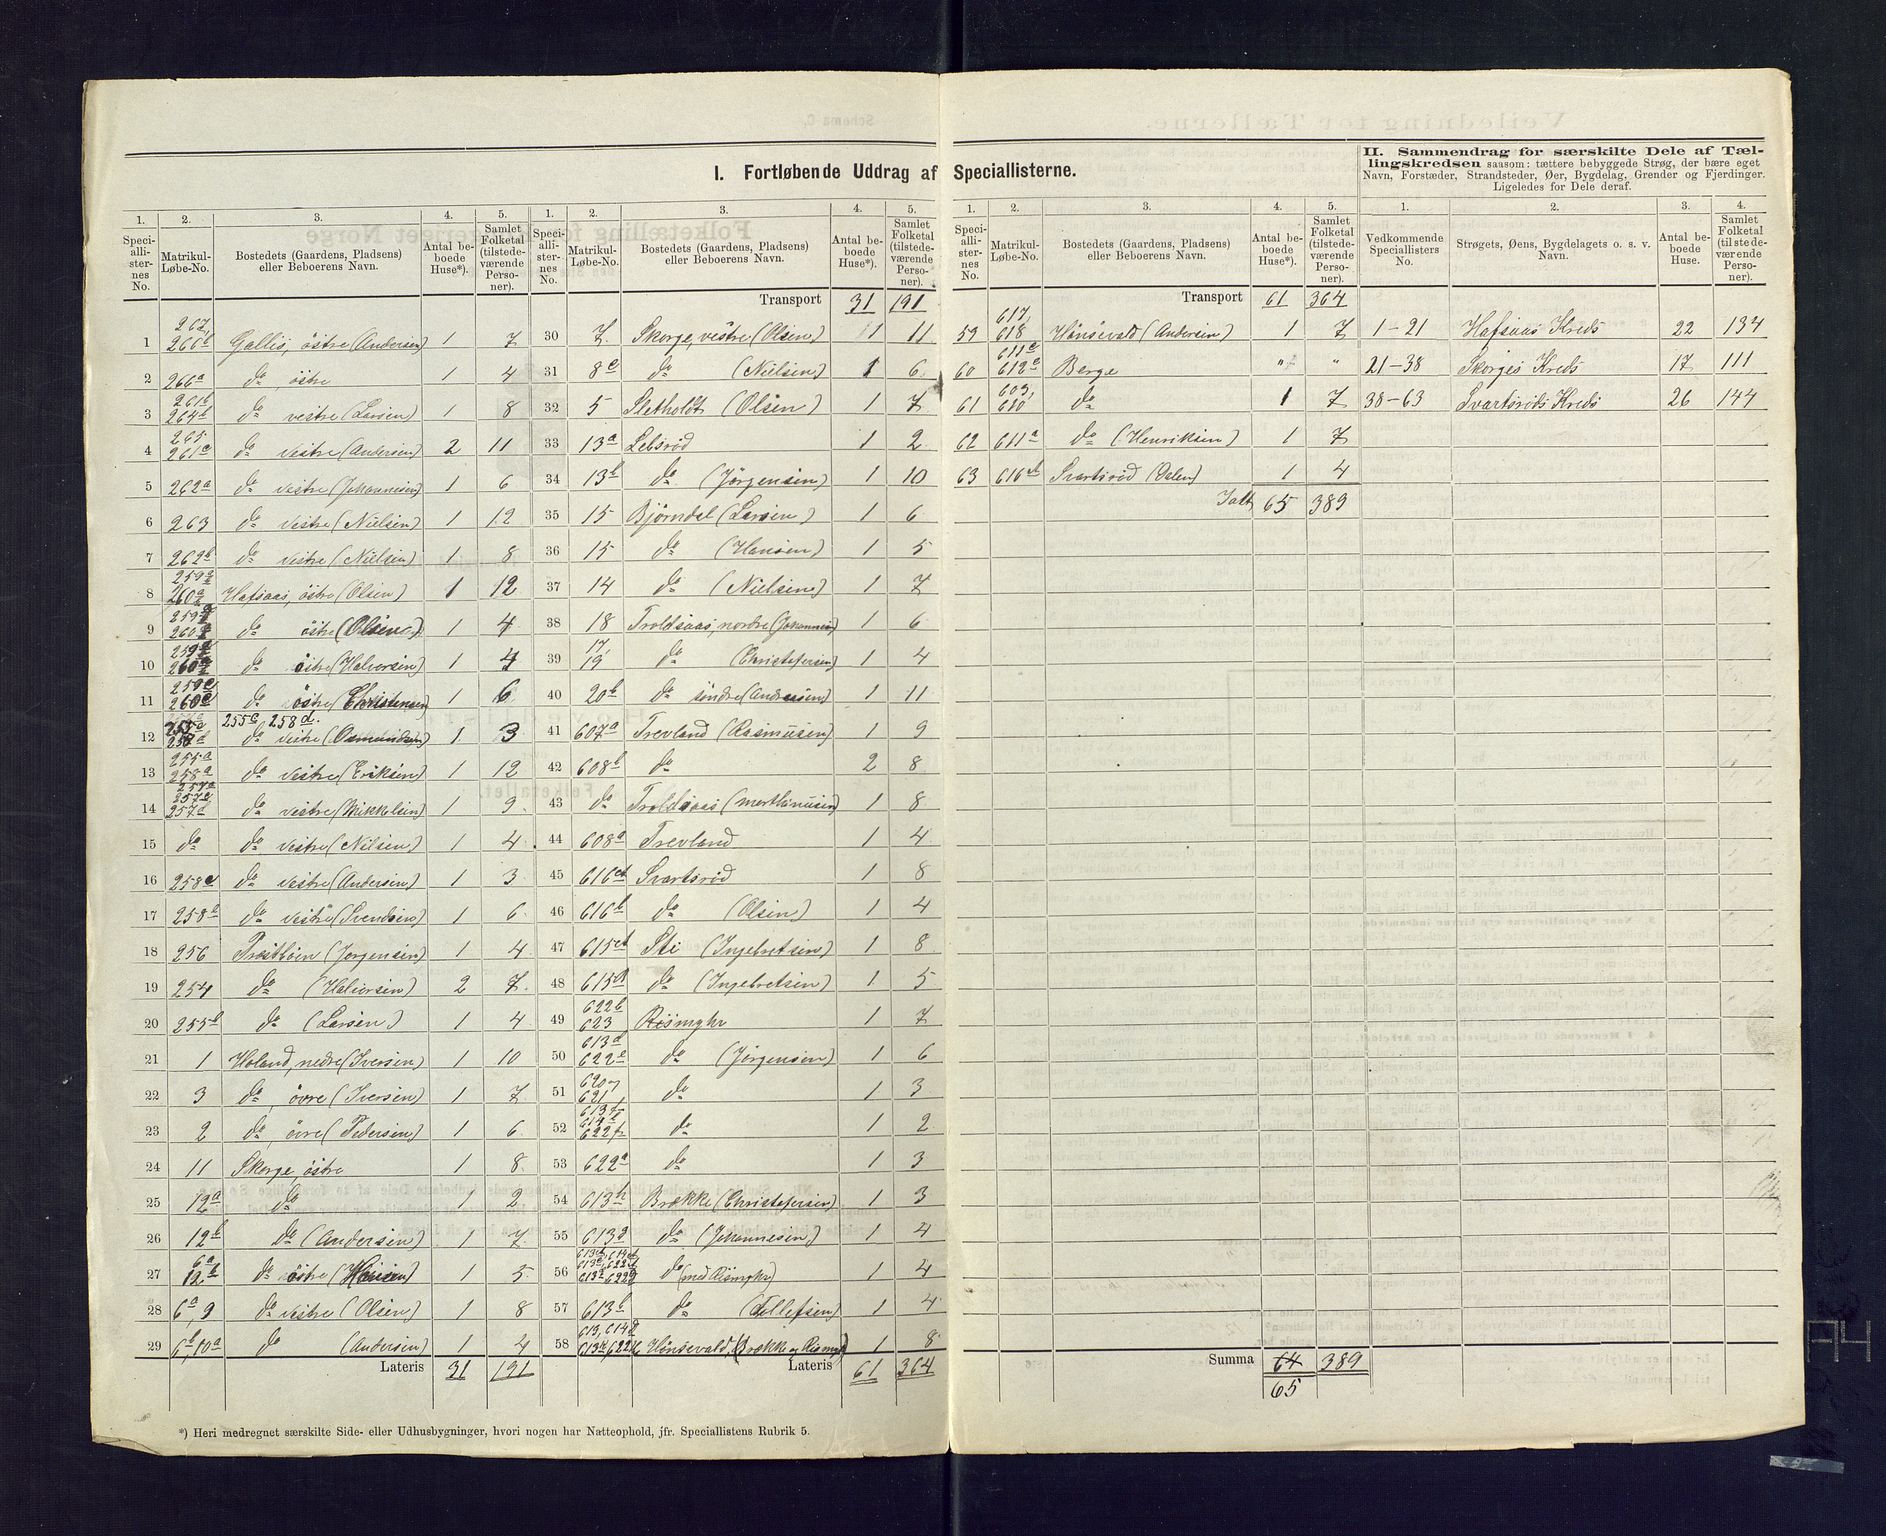 I. Fortløbende Uddrag af Speciallisterne.
II. Sammendrag for særskilte Dele af Tællingskredsen saasom: tættere bebyggede Strøg, der bære eget Navn, Forstæder, Strandsteder, Øer, Bygdelag, Grender og Fjerdinger. Ligeledes for Dele deraf.
1. 2. 3. 4. 5. 1. 2. 3. 4. 5. 1. 2. 3. 4. 5. 1. 2. 3. 4.
Speciallisternes No. Matrikul-Løbe-No. Bostedets (Gaardens, Pladsens) eller Beboerens Navn. Antal beboede Huse*). Samlet Folketal (tilstedeværende Personer).
1 267, 266b Gallis, östre (Andersen) 1 7
2 266a do, östre 1 4
3 261b 264b do vestre (Larsen) 1 8
4 265 261c do vestre (Andersen) 2 11
5 262a do vestre (Johannesen) 1 6
6 263 do vestre (Nielsen) 1 12
7 262b do vestre (Nielsen) 1 8
8 Hafsaas, östre (Olsen) 1 12
9 do östre (Olsen) 1 4
10 do östre (Halvorsen) 1 4
11 259c 260c do östre (Christensen) 1 6
12 255c 258d. do vestre (Osmundsen) 1 3
13 255a 258a do vestre (Eriksen) 1 12
14 257c 257d do vestre (Mikkelsen) 1 9
15 do do vestre (Nilsen) 1 4
16 258c do vestre (Andersen) 1 3
17 258b do vestre (Svendsen) 1 6
18 256 (Jörgensen) 1 4
19 254 do (Halvorsen) 2 7
20 255b do (Larsen) 1 4
21 1 Holand, nedre (Iversen) 1 10
22 3 do, övre (Iversen) 1 7
23 2 do, övre (Pedersen) 1 6
24 11 Skorge, östre 1 8
25 12a do 1 2
26 12b do (Andersen) 1 7
27 6a 12b do östre (Hansen) 1 5
28 6a, 9 do vestre (Olsen) 1 8
29 6b, 10a do (Andersen) 1 4
Lateris 31 191
Speciallisternes No. Matrikul-Løbe-No. Bostedets (Gaardens, Pladsens) eller Beboerens Navn. Antal beboede Huse*). Samlet Folketal (tilstedeværende Personer).
Transport 31 191
30 7. Skorge, vestre (Olsen) 1 11
31 8c do (Nielsen) 1 6
32 5 Sletholdt (Olsen) 1 7
33 13a Lebsröd 1 2
34 13b do (Jörgensen) 1 10
35 15 Björndal (Larsen) 1 6
36 15 do (Hansen) 1 5
37 14 do (Nielsen) 1 7
38 18 Troldsaas, nordre (Johannesen) 1 6
39 17, 19 do (Christofersen) 1 4
40 20b do söndre (Andreasen) 1 11
41 607a Trevland (Rasmusen) 1 9
42 608b do 2 8
43 do Troldsaas (Marthinusen) 1 8
44 608a Trevland 1 4
45 616 Svartsröd 1 8
46 616b do (Olsen) 1 4
47 615 Sti (Ingebretsen) 1 8
48 615 do (Ingebretsen) 1 5
49 622b 623 Rismyhr 1 7
50 613d 622c do (Jörgensen) 1 6
51 620, 621, do 1 3
52 do 1 2
53 622a do 1 3
54 613h Brække (Christofersen) 1 3
55 613 do (Johannesen) 1 4
56 do (med Rismyhr) 1 4
57 613b do (Tellefsen) 1 4
58 Hönsevald, (Brække og Rismyhr) 1 8
Lateris 61 364
Speciallisternes No. Matrikul-Løbe-No. Bostedets (Gaardens, Pladsens) eller Beboerens Navn. Antal beboede Huse*). Samlet Folketal (tilstedeværende Personer).
Transport 61 364
59 617, 618 Hönsevald (Andersen) 1 7
60 611c 612c Berge " "
61 609, 610 do 1 7
62 611a do (Henriksen) 1 7
63 616 Svartsröd (Oalen) 1 4
Ialt 65 389
Summa 64 389
65
Vedkommende Speciallisters No. Strøgets, Øens, Bygdelagets o. s. v. Navn. Antal beboede Huse. Samlet Folketal (tilstedeværende Personer).
1-21 Hafsaas Kreds 22 134
21-38 Skorges Kreds 17 111
38-63 Svartsröds Kreds 26 144
*) Heri medregnet særskilte Side- eller Udhusbygninger, hvori nogen har Natteophold, jfr. Speciallistens Rubrik 5.